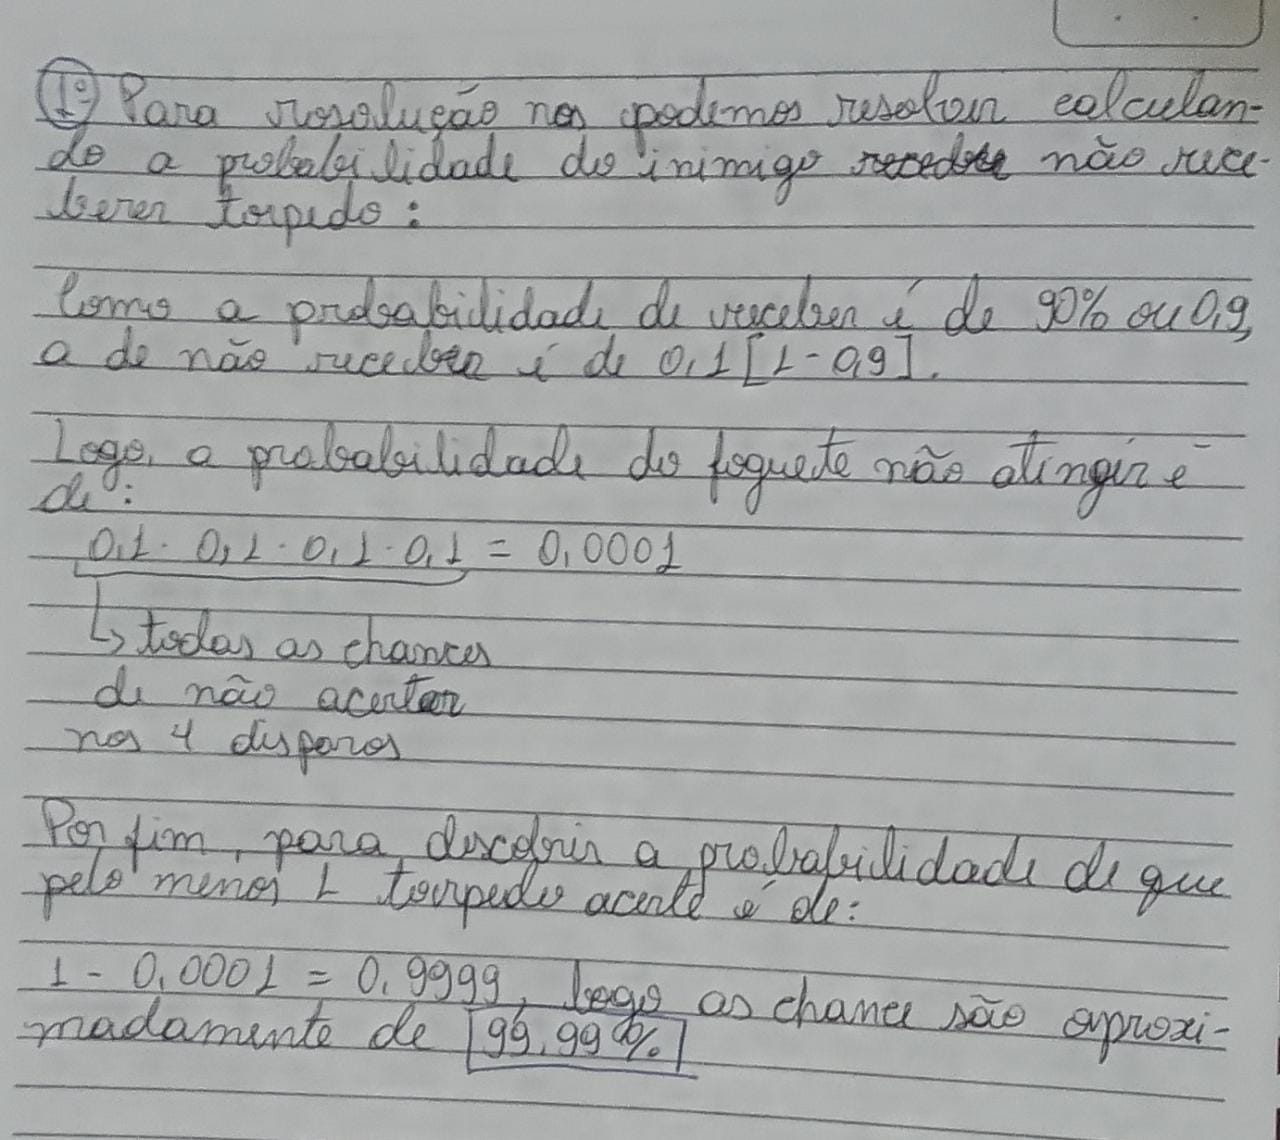 1º Para resolução nos podemos resolver calculan-
do a probabilidade do inimigo não rece-
berer torpedo:
Como a probabilidade de receber é de 90% ou 0,9,
a de não receber é de 0,1 [1 - 0,9].
Logo, a probabilidade do foguete não atingir é
de:
0,1 · 0,1 · 0,1 · 0,1 = 0,0001
↳ todas as chances
de não acertar
nos 4 disparos
Por fim, para descobrir a probabilidade de que
pelo menos 1 torpedo acerte é de:
1 - 0,0001 = 0,9999, logo as chance são aproxi-
madamente de 99,99%